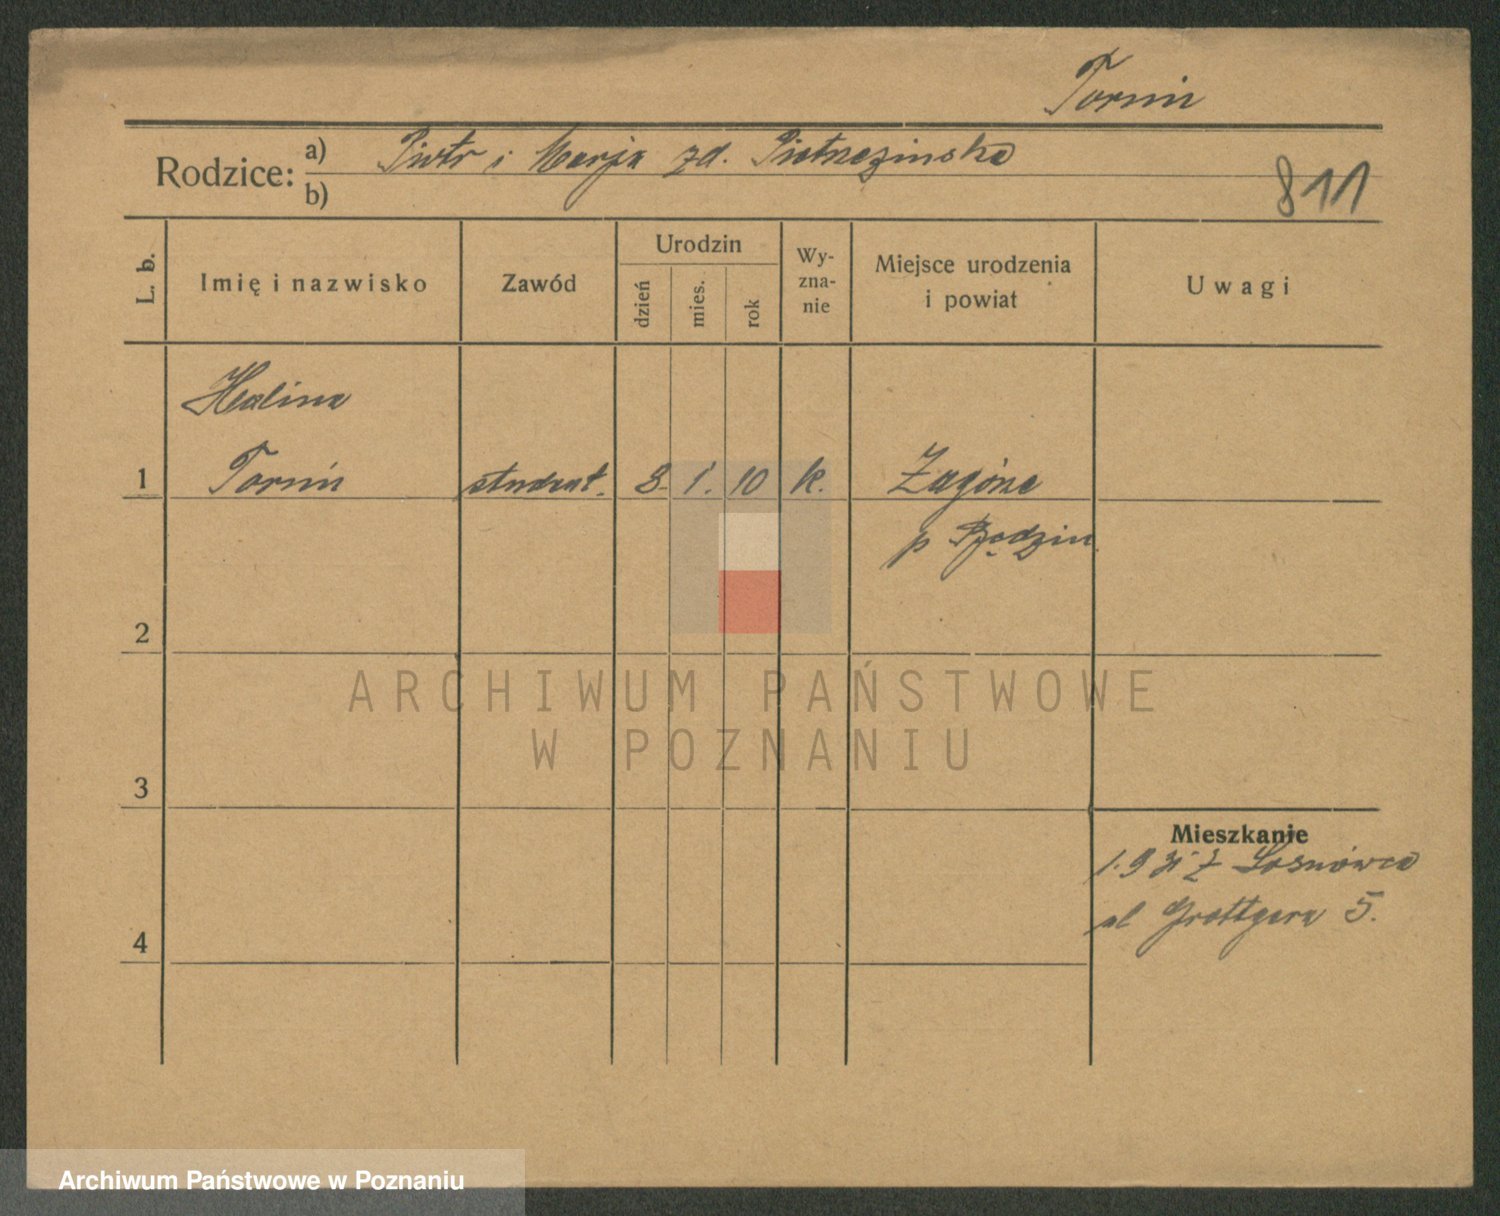 Tormin
Rodzice: a) Piotr i Marja zd. Pietrezinska
b)
811
L. b.
Imię i nazwisko
Zawód
Urodzin
dzień
mies.
rok
Wy-
zna-
nie
Miejsce urodzenia
i powiat
Uwagi
Halina
1 Tormin student. 8. 1. 10 k. Zagórze
p Będzin
2
3
4
Mieszkanie
1.9 31 z Sosnówca
ul Grottgera 5.
ARCHIWUM PAŃSTWOWE
W POZNANIU
Archiwum Państwowe w Poznaniu